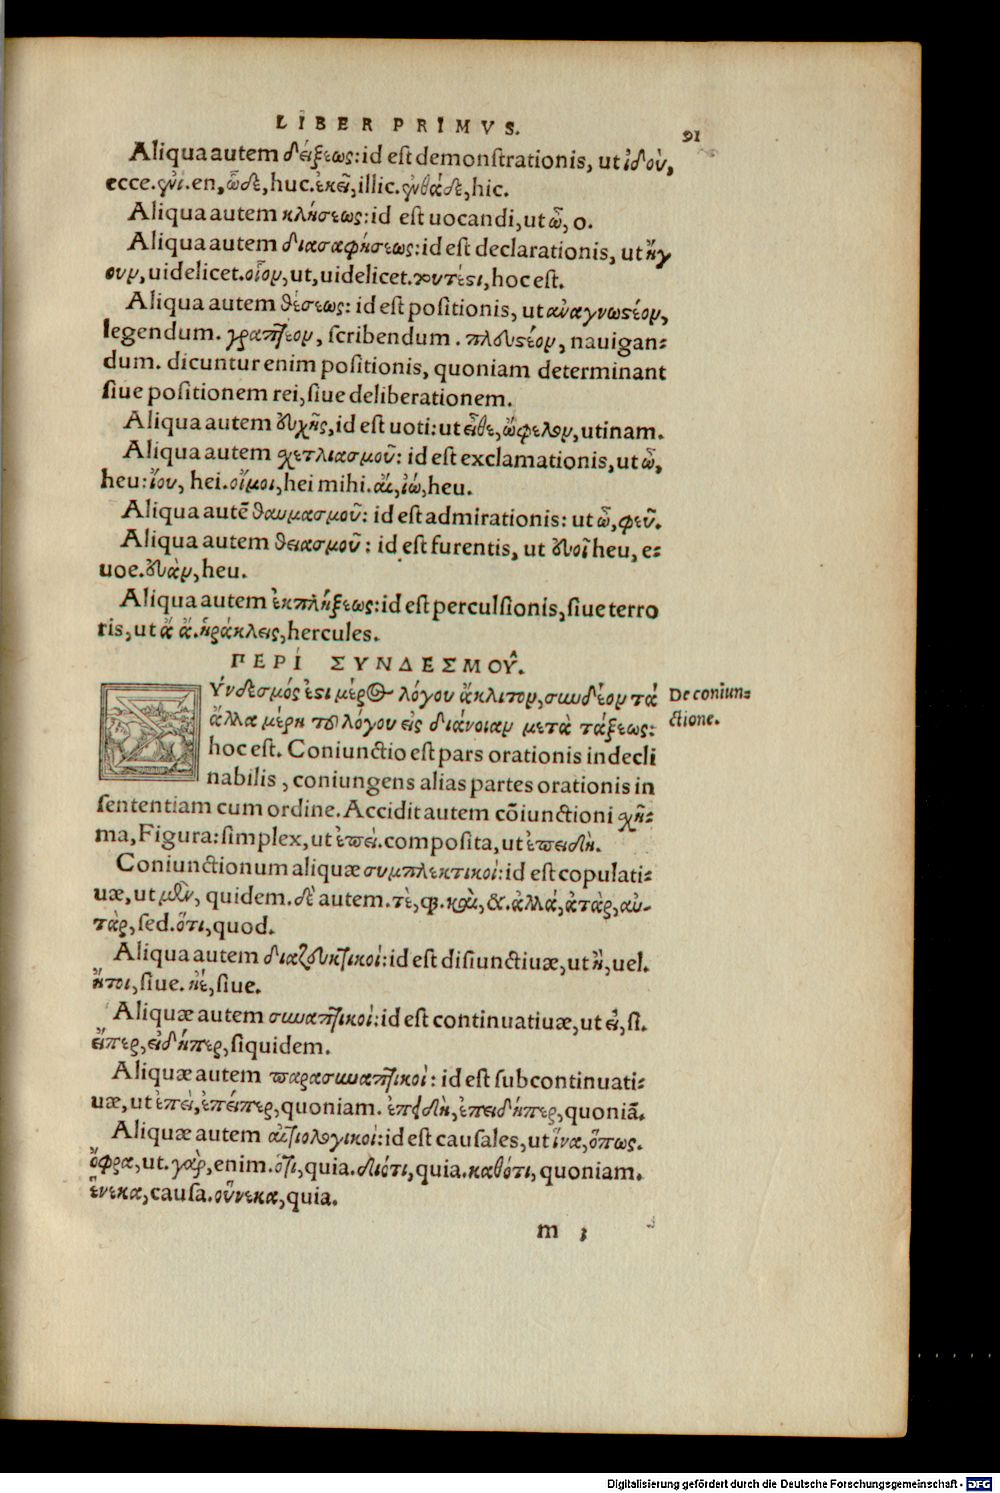 LIBER PRIMVS.
91
Aliqua autem δείξεως: id est demonstrationis, ut ἰδού,
ecce. ἠνί. en, ὧδε, huc. ἐκεῖ, illic. ἐνθάδε, hic.
Aliqua autem κλήσεως: id est uocandi, ut ὦ, o.
Aliqua autem διασαφήσεως: id est declarationis, ut ἤγ
ουν, uidelicet. οἷον, ut, uidelicet. τουτέστι, hoc est.
Aliqua autem θέσεως: id est positionis, ut ἀναγνωστέον,
legendum. γραπτέον, scribendum. πλευστέον, nauigan-
dum. dicuntur enim positionis, quoniam determinant
siue positionem rei, siue deliberationem.
Aliqua autem εὐχῆς, id est uoti: ut εἶθε, ὤφελον, utinam.
Aliqua autem σχετλιασμοῦ: id est exclamationis, ut ὦ,
heu: ἴου, hei. οἴμοι, hei mihi. αἲ, ἰώ, heu.
Aliqua autē θαυμασμοῦ: id est admirationis: ut ὦ, φεῦ.
Aliqua autem θειασμοῦ: id est furentis, ut εὐοῖ heu, e-
uoe. εὐὰν, heu.
Aliqua autem ἐκπλήξεως: id est perculsionis, siue terro
ris, ut ἄ ἄ. ἡράκλεις, hercules.
ΠΕΡΙ ΣΥΝΔΕΣΜΟΥ͂.
Σύνδεσμός ἐστι μέρος λόγου ἄκλιτον, συνδέον τά
De coniun-
ἄλλα μέρη τοῦ λόγου εἰς διάνοιαν μετὰ τάξεως:
ctione.
hoc est. Coniunctio est pars orationis indecli
nabilis, coniungens alias partes orationis in
sententiam cum ordine. Accidit autem cōiunctioni σχῆ-
μα, Figura: simplex, ut ἐπεί. composita, ut ἐπειδή.
Coniunctionum aliquæ συμπλεκτικοί: id est copulati-
uæ, ut μὲν, quidem. δὲ autem. τὲ, que. καὶ, &. ἀλλά, ἀτάρ, αὐ-
τὰρ, sed. ὅτι, quod.
Aliqua autem διαζευκτικοί: id est disiunctiuæ, ut ἢ, uel.
ἤτοι, siue. ἠέ, siue.
Aliquæ autem συναπτικοί: id est continuatiuæ, ut εἰ, si.
εἴπερ, εἰδήπερ, siquidem.
Aliquæ autem παρασυναπτικοί: id est subcontinuati-
uæ, ut ἐπεί, ἐπείπερ, quoniam. ἐπειδὴ, ἐπειδήπερ, quoniā.
Aliquæ autem αἰτιολογικοί: id est causales, ut ἵνα, ὅπως.
ὄφρα, ut. γάρ, enim. ὅτι, quia. διότι, quia. καθότι, quoniam.
ἕνεκα, causa. οὕνεκα, quia.
m 3
Digitalisierung gefördert durch die Deutsche Forschungsgemeinschaft - DFG